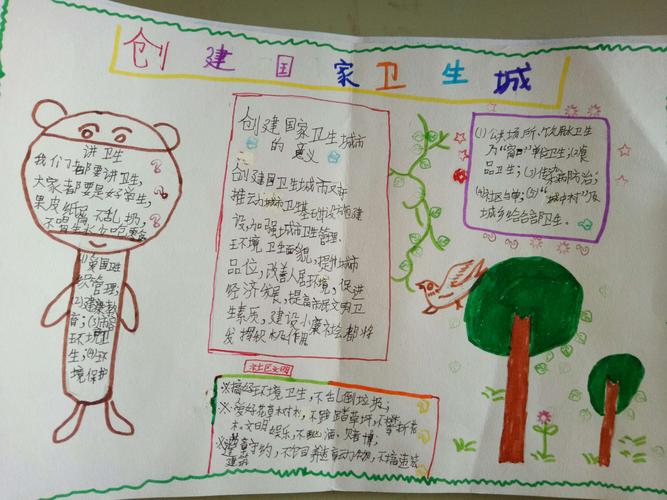 创建国家卫生城
讲卫生
我们都要讲卫生,
大家都要是好学生,
果皮纸屑不乱扔,
不喝生水
管理;
(2)健康教
育;(3)市容
环境卫
生;(4)环
境保护
创建国家卫生城市
的意义
创建国卫生城市对
推动城市卫生基础设施建
设,加强城市卫生管理.
环境卫生面貌,提升城市
品位,改善人居环境,促进
经济发展,提高市民文明卫
生素质,建设小康社会都将
发挥积极作用
社区文明
※搞好环境卫生,不乱倒垃圾;
※爱好花草树木,不踩踏草坪,不攀折花
木.文明娱乐,不酗酒.赌博;
※遵章守约,不
建筑
(1)公共场所、饮用水卫生
为"窗口"单位卫生;(2)食
品卫生;(3)传染病防治;
(4)社区与单;(5)"城中村"及
城乡结合部卫生.